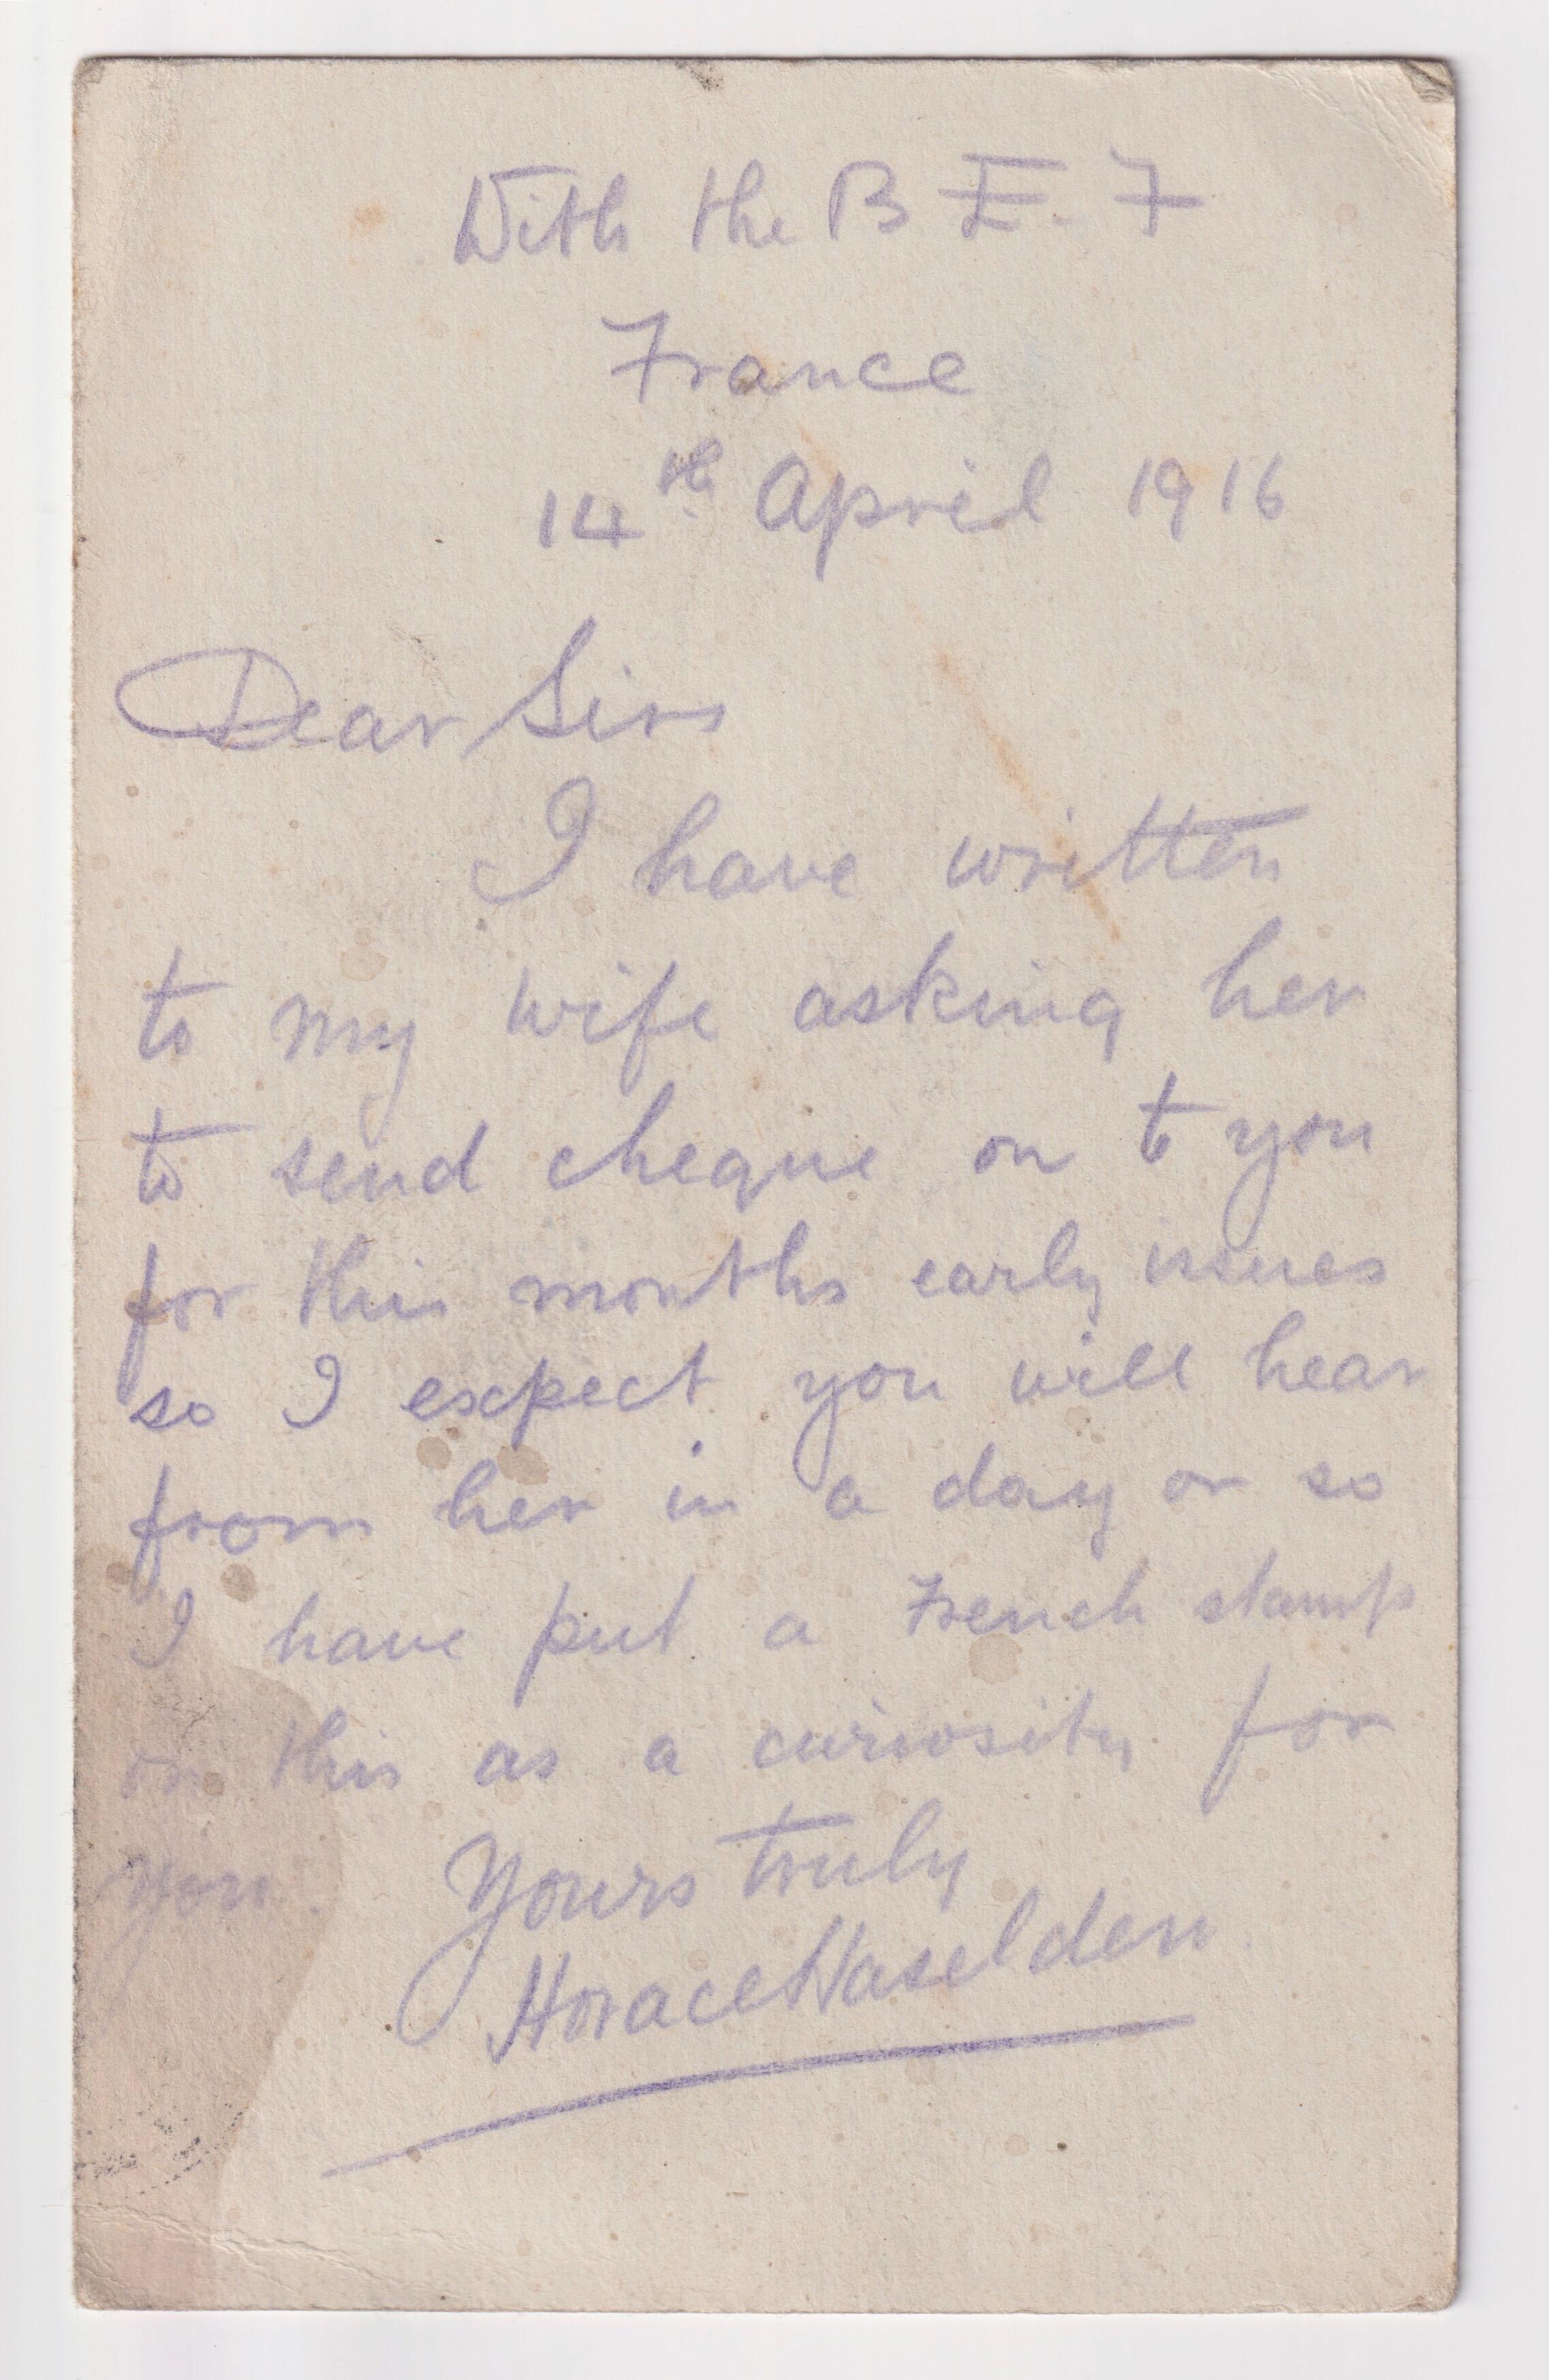 With the B E. F
France
14th April 1916
Dear Sirs
I have written
to my wife asking her
to send cheque on to you
for this months early issues
so I expect you will hear
from her in a day or so
I have put a French stamp
on this as a curiosity for
you. Yours truly
Horace Haselden